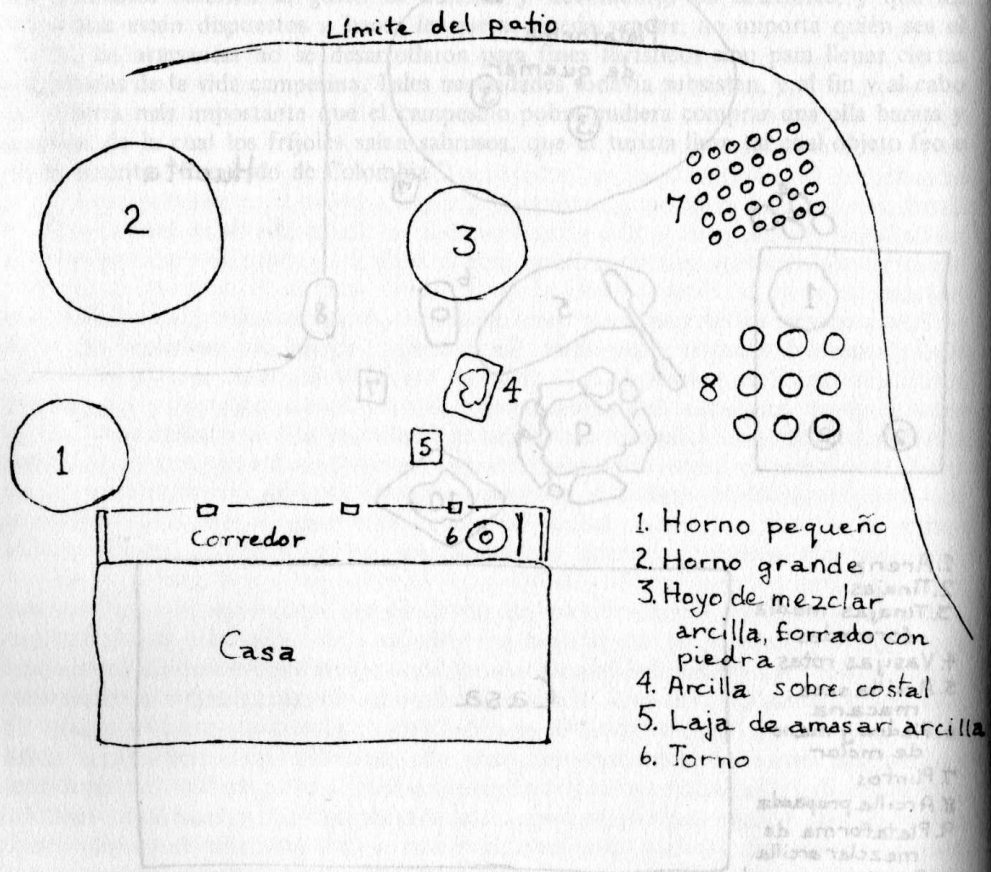 Límite del patio
2
3
7
4
8
1
5
Corredor
6
Casa
1. Horno pequeño
2. Horno grande
3. Hoyo de mezclar
arcilla, forrado con
piedra
4. Arcilla sobre costal
5. Laja de amasar arcilla
6. Torno